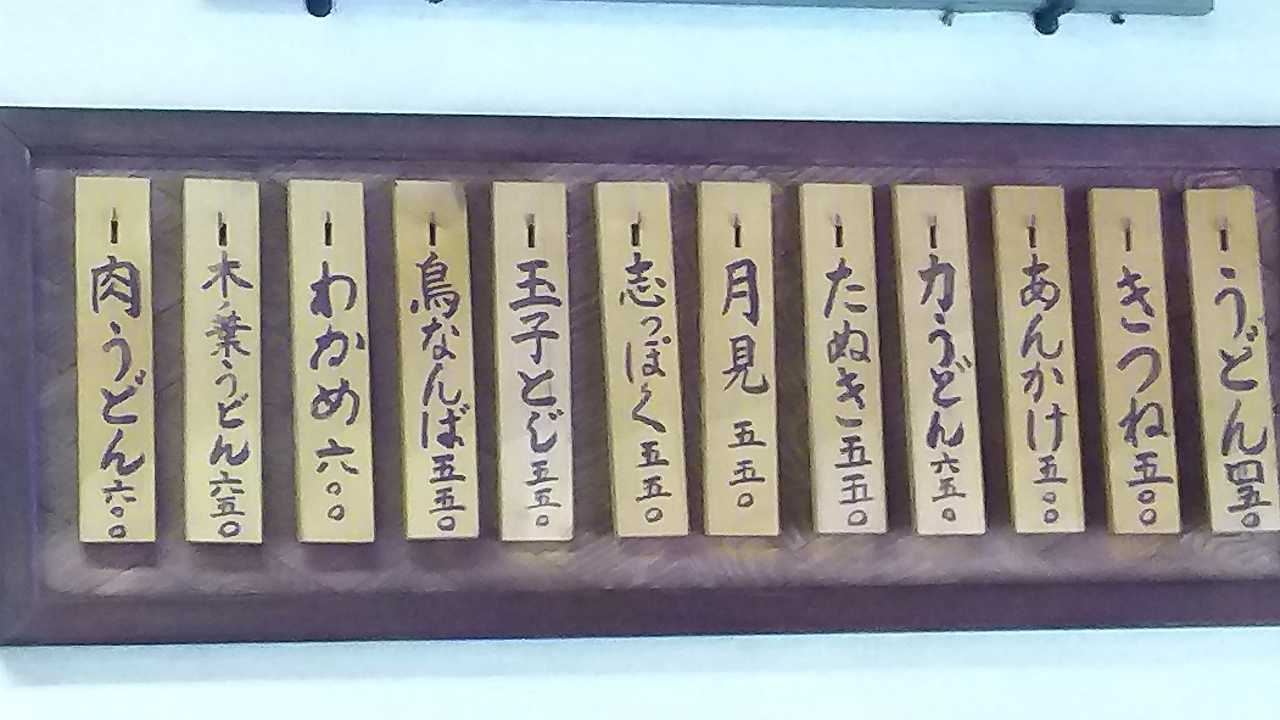 うどん四五〇
きつね五〇〇
あんかけ五〇〇
力うどん六五〇
たぬき五五〇
月見五五〇
志っぽく五五〇
玉子とじ五五〇
鳥なんば五五〇
わかめ六〇〇
木ノ葉うどん六五〇
肉うどん六〇〇